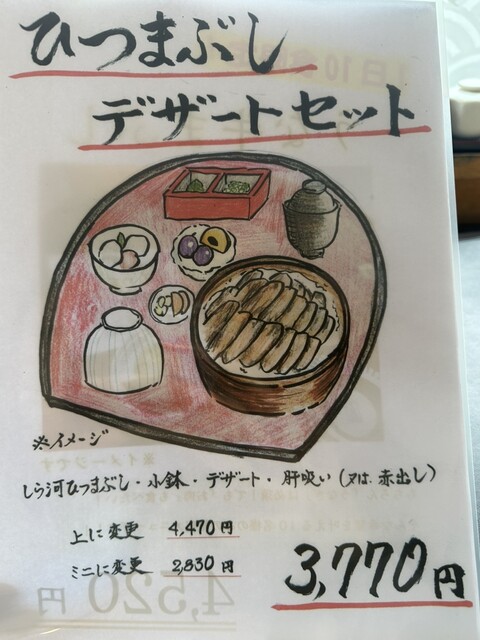 ひつまぶし
デザートセット
※イメージ
しら河ひつまぶし・小鉢・デザート・肝吸い(又は赤出し)
上に変更 4,470円
ミニに変更 2,830円
3,770円
4,520円